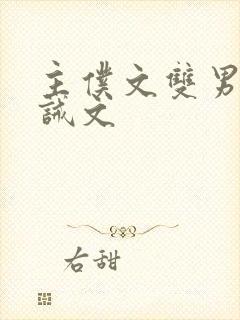 主僕文雙男
誡文
右甜